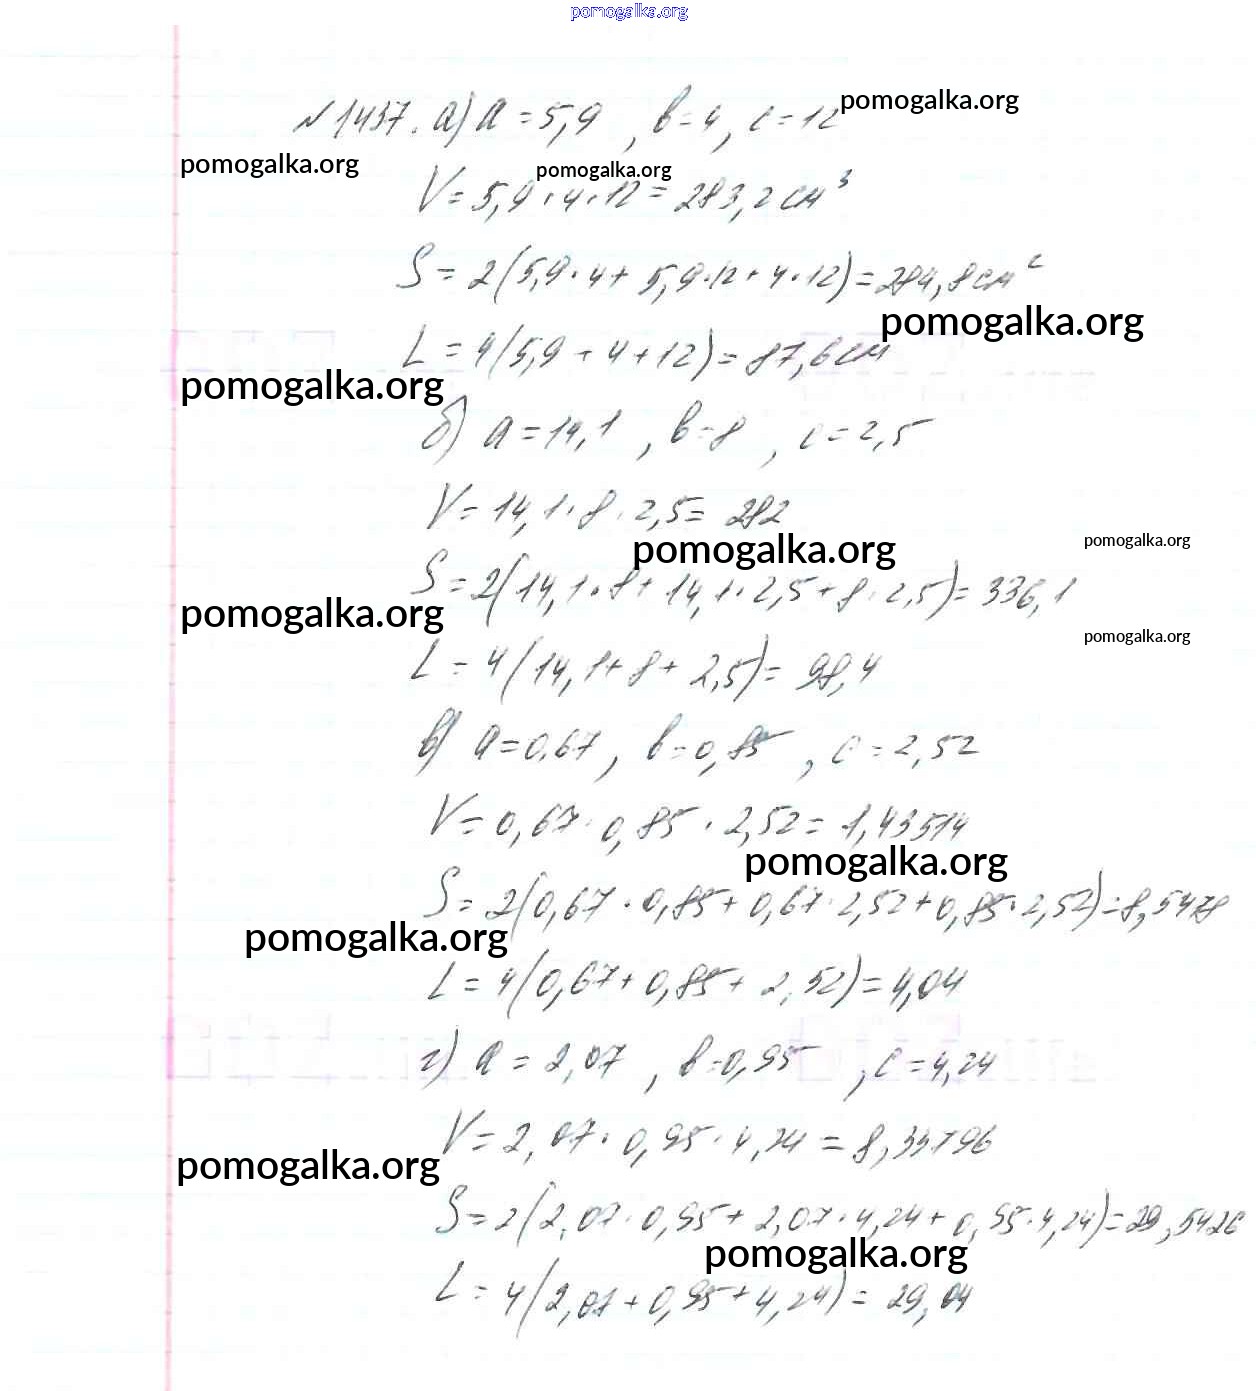 pomogalka.org
№1437. а) a = 5,9 , b = 4, c = 12 pomogalka.org
pomogalka.org pomogalka.org
V = 5,9 · 4 · 12 = 283,2 см³
S = 2(5,9 · 4 + 5,9 · 12 + 4 · 12) = 284,8 см²
pomogalka.org
L = 4(5,9 + 4 + 12) = 87,6 см
pomogalka.org
б) a = 14,1 , b = 8 , c = 2,5
V = 14,1 · 8 · 2,5 = 282
pomogalka.org pomogalka.org
S = 2(14,1 · 8 + 14,1 · 2,5 + 8 · 2,5) = 336,1
pomogalka.org
pomogalka.org
L = 4(14,1 + 8 + 2,5) = 98,4
в) a = 0,67 , b = 0,85 , c = 2,52
V = 0,67 · 0,85 · 2,52 = 1,43514
pomogalka.org
S = 2(0,67 · 0,85 + 0,67 · 2,52 + 0,85 · 2,52) = 8,5478
pomogalka.org
L = 4(0,67 + 0,85 + 2,52) = 4,04
г) a = 2,07 , b = 0,95 , c = 4,24
V = 2,07 · 0,95 · 4,24 =
pomogalka.org
S = 2(2,07 · 0,95 + 2,07 · 4,24 + 0,95 · 4,24) = 29,5426
pomogalka.org
L = 4(2,07 + 0,95 + 4,24) = 29,04